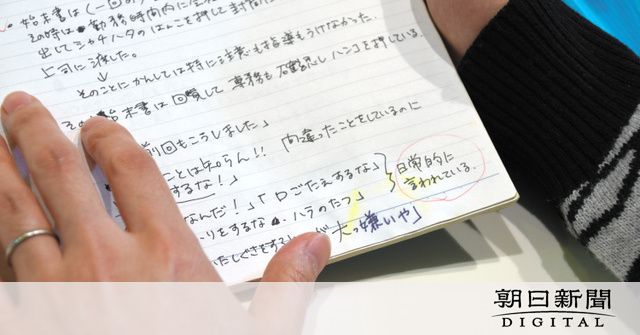 始末書は(一回の
この時は・勤務時間内に
出してシャチハタのはんこを押して封筒に
上司に渡した。
↓
そのことにかんしては特に注意も指導もうけなかった。
始末書は回覧して専務も確認し ハンコを押している。
前回もこうしました」
ことは知らん!! 間違ったことをしているのに
するな!」
なんだ!」「口ごたえするな」
日常的に
言われている。
りをするな ハラのたつ」
大っ嫌いや」
朝日新聞
DIGITAL